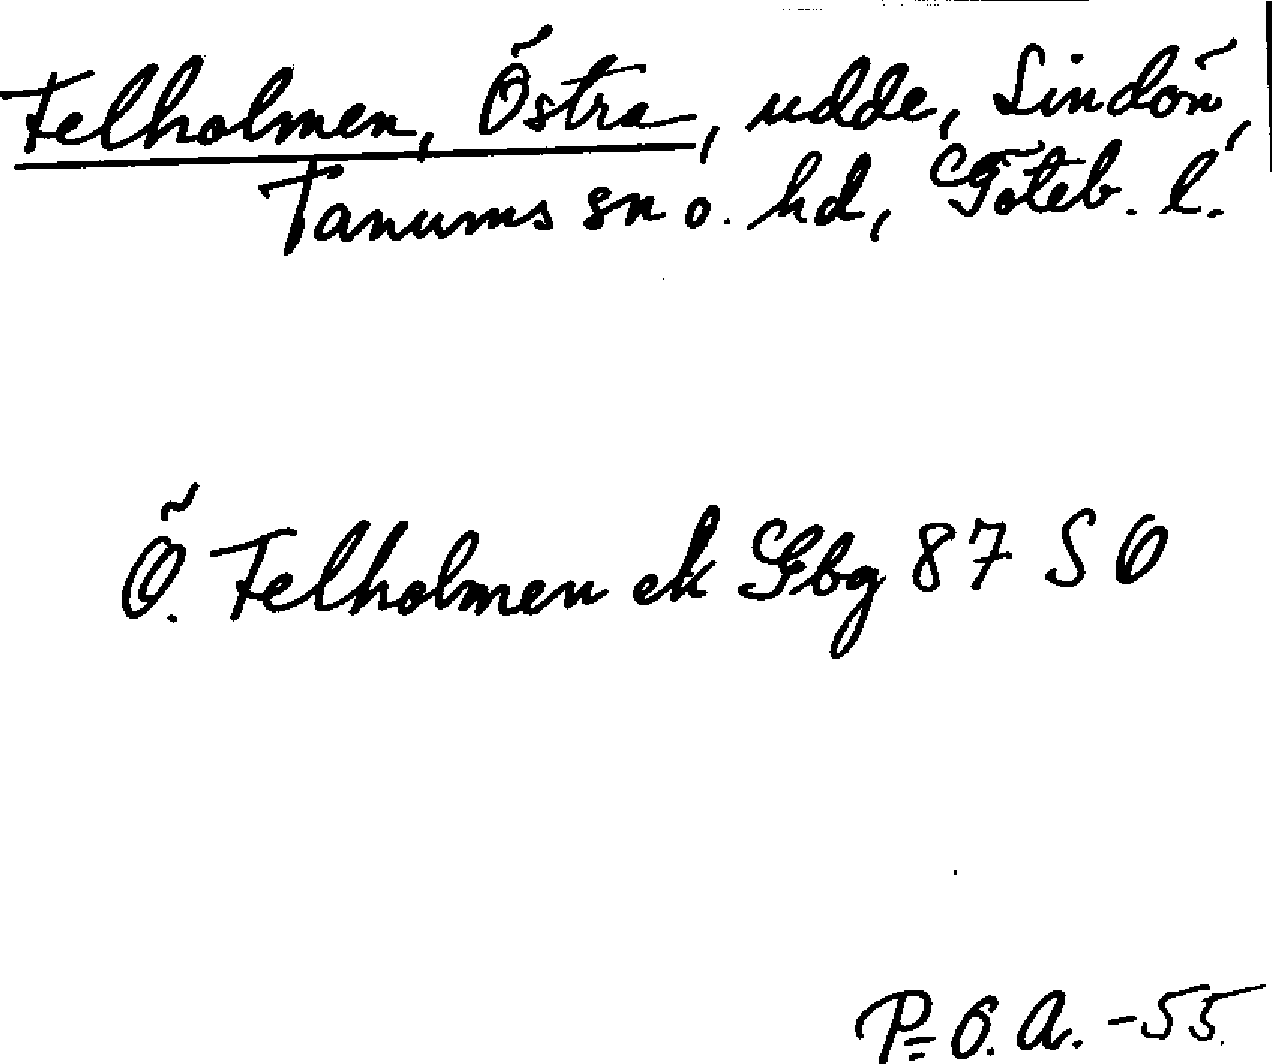 Felholmen, Östra, udde, Lindön,
Tanums sn o. hd, Göteb. l.
Ö. Felholmen ek Gbg 87 SO
P=O.A. -55.